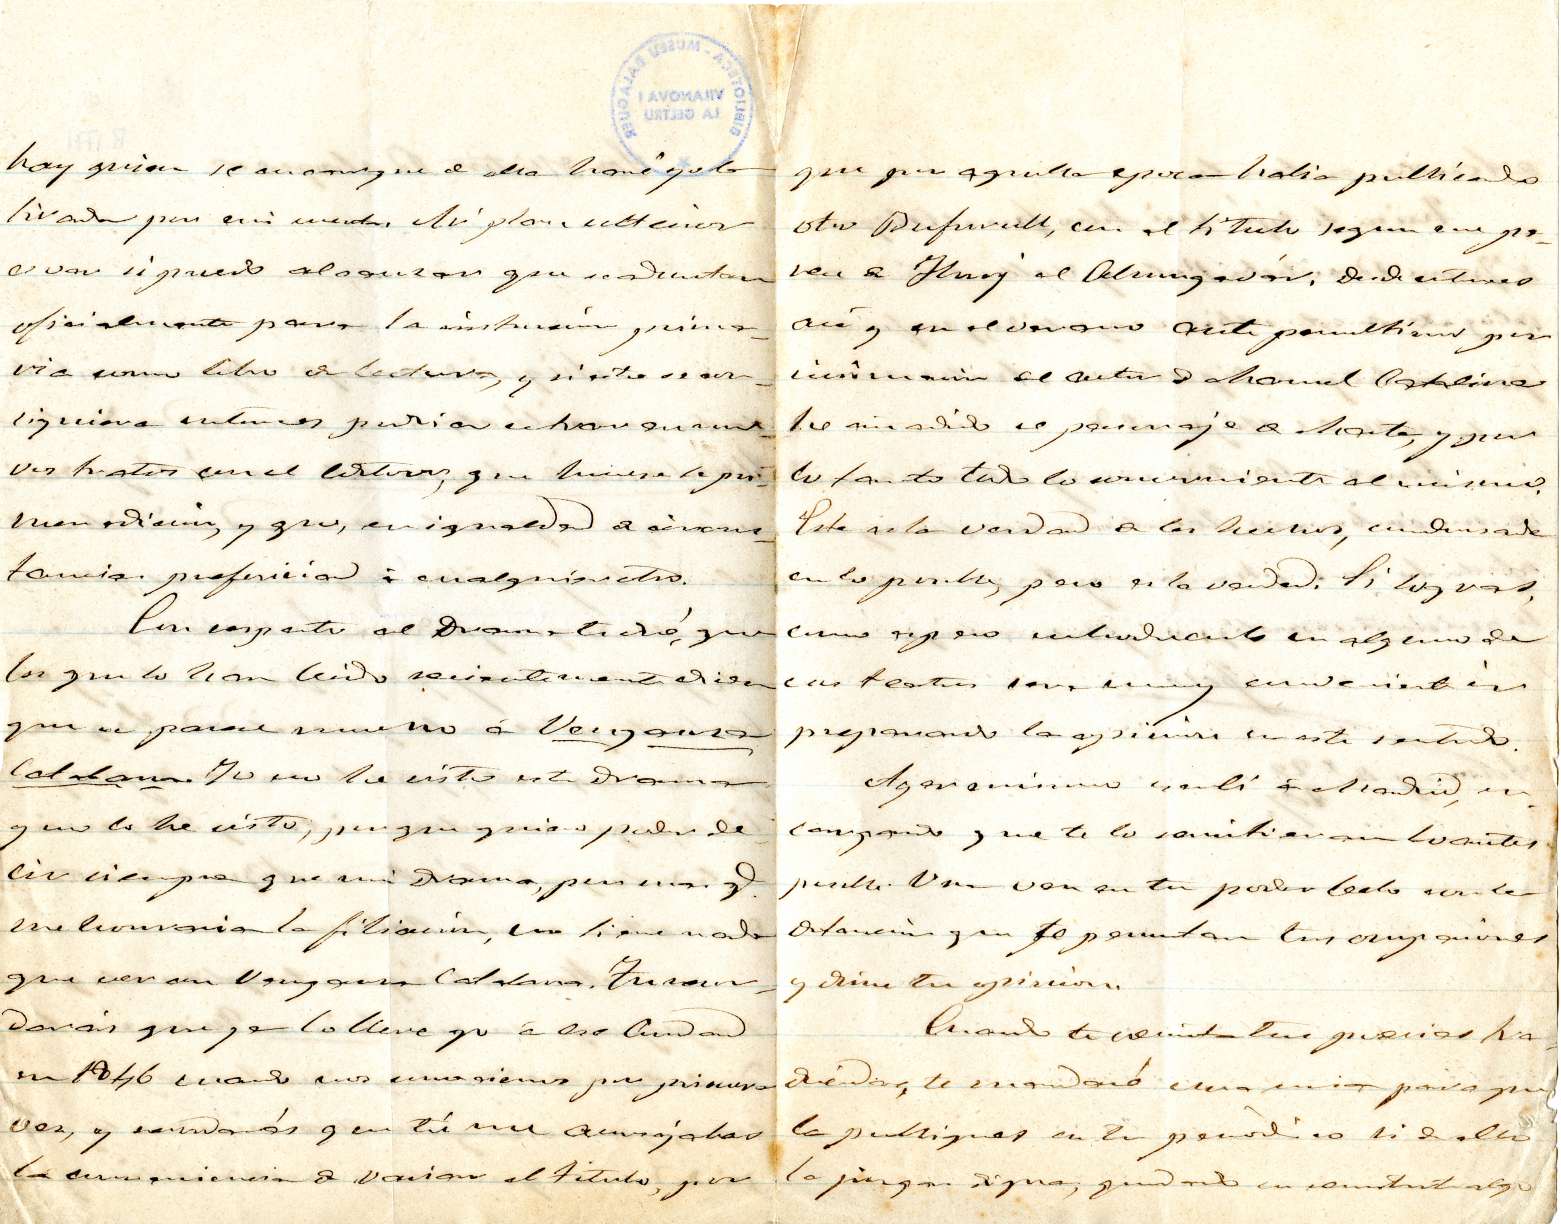 BIBLIOTECA - MUSEU BALAGUER
VILANOVA I
LA GELTRU
hay quien se encargue de ella haré yo la
tirada por mi cuenta. Mi plan ulterior
es ver si puedo alcanzar que se adopten
oficialmente para la instrucción prima-
ria como libro de lectura, y si esto se con-
siguiera entonces podria entrar en nue-
vos tratos con el editor, que hiciese la pri-
mera edicion, y que, en igualdad de circuns-
tancias preferiria á cualquier otro.
Con respecto al Drama te diré, que
los que lo han leido recientemente dicen
que se parece mucho á Venganza
Catalana. Yo no he visto este drama
y no lo he visto, porque quiero poder de
cir siempre que mi drama, por mas q.
me honraria la filiación, no tiene nada
que ver con Venganza Catalana. Tu recor-
darás que ya lo llevé yo á esa Ciudad
en 1846 cuando nos conocimos por primera
vez, y recordarás que tú me aconsejabas
la conveniencia de variar el titulo, por
que por aquella epoca habia publicado
otro Bufarull, con el titulo segun me pa-
rece de Roger el Almogavár. Desde entonces
acá y en el verano ante penultimo, por
insinuacion del actor D. Manuel Catalina
he añadido el personaje de Marta, y por
lo tanto todo lo concerniente al mismo.
Esta es la verdad de los hechos, condensada
en lo posible, pero es la verdad. Si logras,
como espero introducirlo en alguno de
esos teatros será muy conveniente ir
preparando la opinion en este sentido.
Ayer mismo escribí á Madrid, en-
cargando que te lo remitieran lo antes
posible. Una vez en tu poder leelo con la
detencion que te permitan tus ocupaciones
y dime tu opinion.
Cuando te remita tus poesias tra-
ducidas, te mandaré una mia para que
la publiques en tu periódico si de ello
la juzgas digna, quedando en remitirte algo